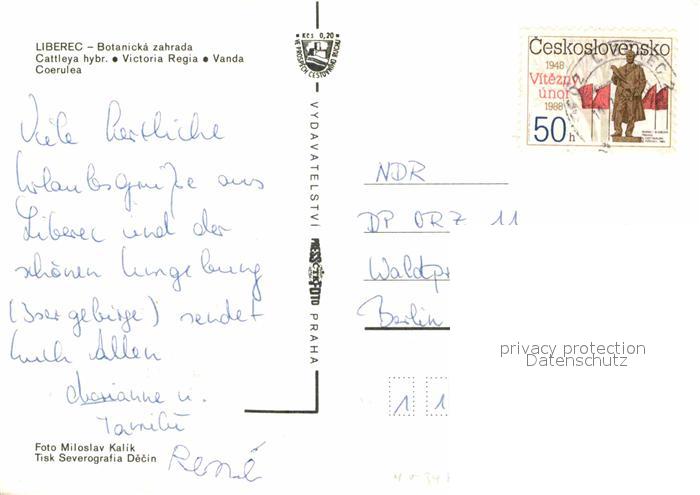 LIBEREC – Botanická zahrada
Cattleya hybr. ● Victoria Regia ● Vanda
Coerulea
Kčs 0,20
VE PROSPĚCH CESTOVNÍHO RUCHU
VYDAVATELSTVÍ PRESSFOTO PRAHA
Československo
1948
Vítězný
únor
1988
50 h
Viele herzliche
Urlaubsgrüße aus
Liberec und der
schönen Umgebung
(Isergebirge) sendet
Euch Allen
Marianne u.
Familie
René
NDR
DP ORZ 11
Waldpr
Berlin
1 1
privacy protection
Datenschutz
Foto Miloslav Kalík
Tisk Severografia Děčín